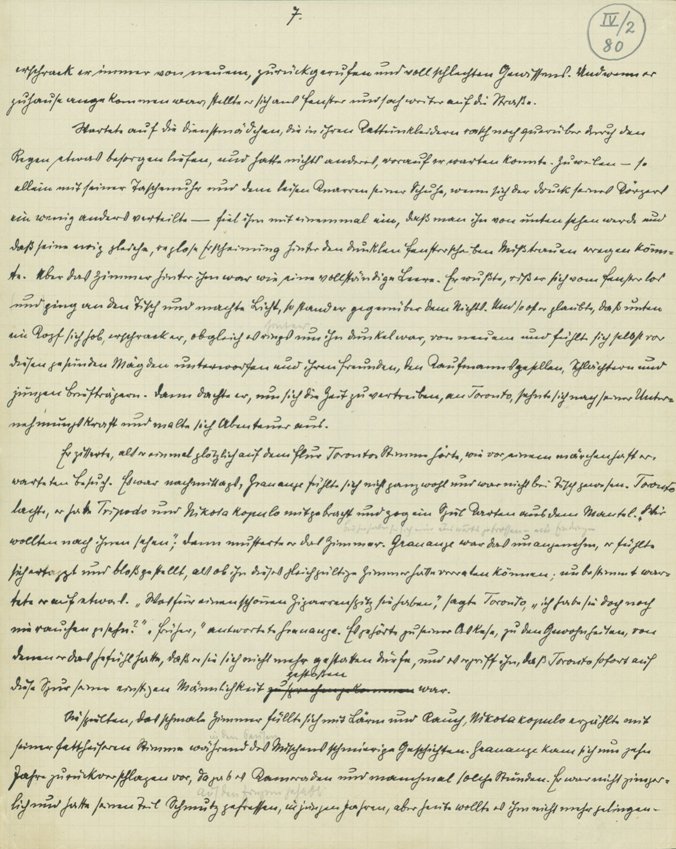 7.
IV/2
80
erschrack er immer von neuem, zurückgerufen und voll schlechten Gewissens. Und wenn er
zuhause angekommen war, stellte er sich ans Fenster und sah weiter auf die Straße.
Wartete auf die Dienstmädchen, die in ihren Kattunkleidern rasch noch querüber durch den
Regen etwas besorgen liefen, und hatte nichts anderes, worauf er warten konnte. Zuweilen — so
allein mit seiner Taschenuhr und dem leisen Knarren seiner Schuhe, wenn sich der Druck seines Körpers
ein wenig anders verteilte — fiel ihm mit einemmal ein, daß man ihn von unten sehen werde und
daß seine ewig gleiche, reglose Erscheinung hinter den dunklen Fensterscheiben Mißtrauen erregen könn-
te. Aber das Zimmer hinter ihm war wie eine vollständige Leere. Er wußte, riß er sich vom Fenster los
und ging an den Tisch und machte Licht, so stand er gegenüber dem Nichts. Und so oft er glaubte, daß unten
ein Kopf sich hob, erschrack er, obgleich es rings um ihn dunkel war, von neuem und fühlt sich selbst vor
diesen gesunden Mägden unterworfen und ihren Freunden, den Kaufmannsgesellen, Schlächtern und
jungen Briefträgern. Dann dachte er, um sich die Zeit zu vertreiben, an Toronto, sehnte sich nach seiner Unter-
nehmungskraft und malte sich Abenteuer aus.
Er zitterte, als er einmal plötzlich auf dem Flur Torontos Stimme hörte, wie vor einem märchenhaft er-
warteten Besuch. Es war nachmittags, Grananze fühlte sich nicht ganz wohl und war nicht bei Tisch gewesen. Toronto
lachte, er habe Tripodo und Nikotakopulo mitgebracht und zog ein Spiel Karten aus dem Mantel. „Wir
wollten nach ihnen sehen"; dann musterte er das Zimmer. Grananze war das unangenehm, er fühlte
sich ertappt und bloßgestellt, als ob ihn dieses gleichgültige Zimmer hätte verraten können; unbestimmt war-
tete er auf etwas. „Was für einen schönen Zigarrenspitz sie haben," sagte Toronto, „ich habe sie doch noch
nie rauchen gesehn?" „Früher," antwortete Grananze. Es gehörte zu seiner Askese, zu den Gewohnheiten, von
denen er das Gefühl hatte, daß er sie sich nicht mehr gestatten dürfe, und es ergriff ihn, daß Toronto sofort auf
gestoßen
diese Spur seiner einstigen Männlichkeit war.
Sie spielten, das schmale Zimmer füllt sich mit Lärm und Rauch, Nikotakopulo erzählte mit
seiner fettheiseren Stimme während des Mischens schmierige Geschichten. Grananze kam sich um zehn
Jahre zurückverschlagen vor, da gab es Kameraden und manchmal solche Stunden. Er war nicht zimper-
lich und hatte seinen Teil Schmutz gefressen, in jungen Jahren, aber heute wollte es ihm nicht mehr gelingen.